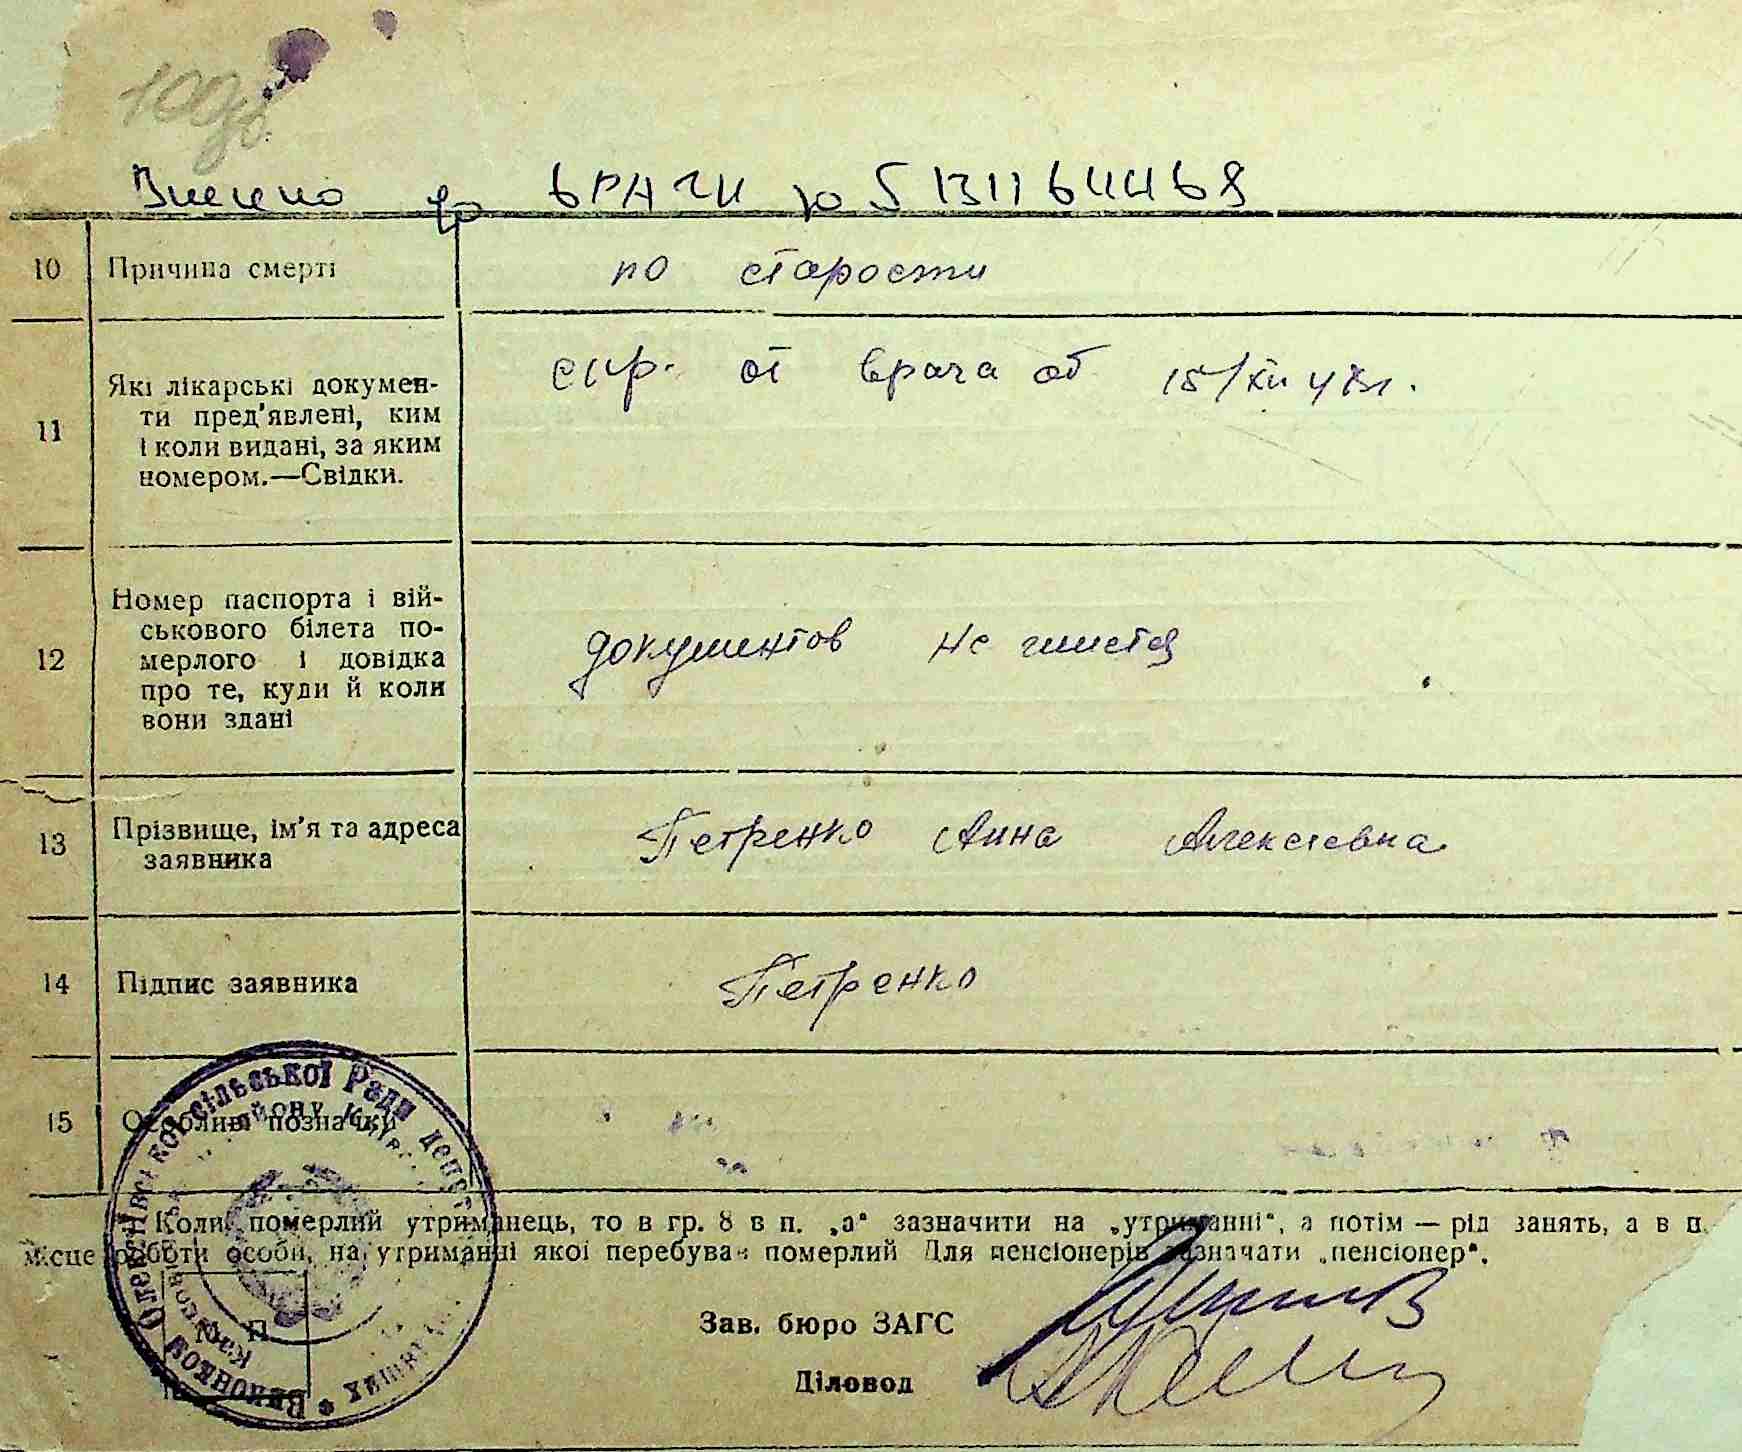 Внесено до ВРАЦСГ
10 Причина смерті по старости
11 Які лікарські докумен-
ти пред'явлені, ким
і коли видані, за яким
номером.—Свідки.
спр. от врача от 15/XII
12 Номер паспорта і вій-
ськового білета по-
мерлого і довідка
про те, куди й коли
вони здані
документов не имется
13 Прізвище, ім'я та адреса
заявника
Петренко Анна Алексеевна
14 Підпис заявника Петренко
15 Особливі позначки
Коли померлий утриманець, то в гр. 8 в п. „а" зазначити на „утриманні", а потім — рід занять, а в п.
місце роботи особи, на утриманні якої перебував померлий Для пенсіонерів зазначати „пенсіонер".
Зав. бюро ЗАГС
Діловод
М. П.
Виконком сільської Ради депут